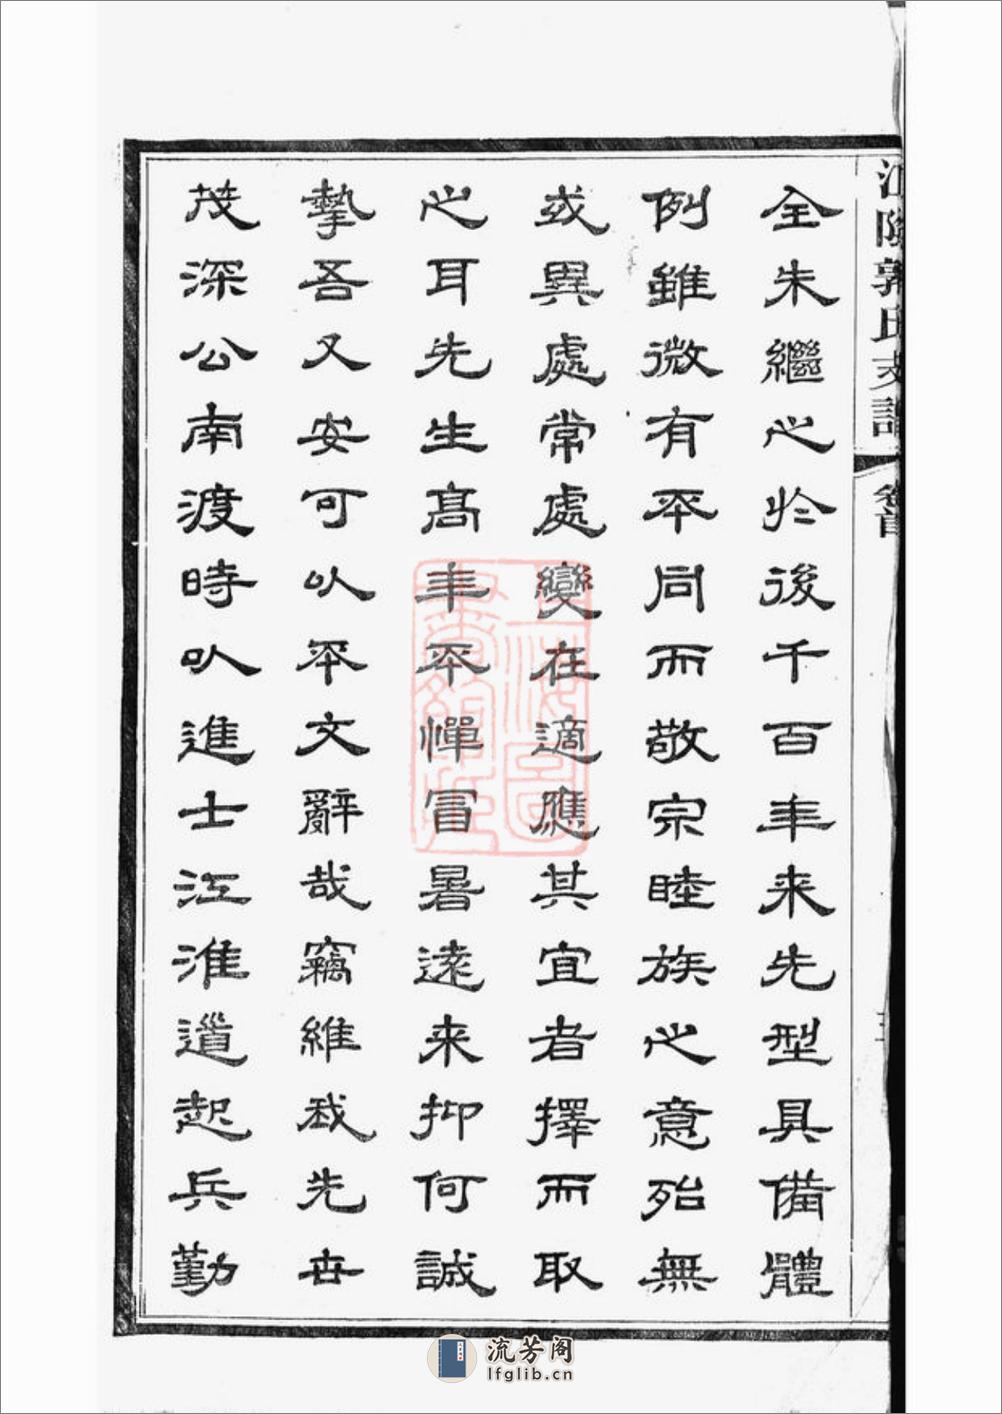 江陰郭氏支譜 卷首
全朱繼之於後千百年來先型具備體
例雖微有不同而敬宗睦族之意殆無
或異處常處變在適應其宜者擇而取
之耳先生高年不憚冒暑遠來抑何誠
摯吾又安可以不文辭哉竊維我先世
茂深公南渡時以進士江淮道起兵勤
上海圖
書館藏
流芳阁
lfglib.cn